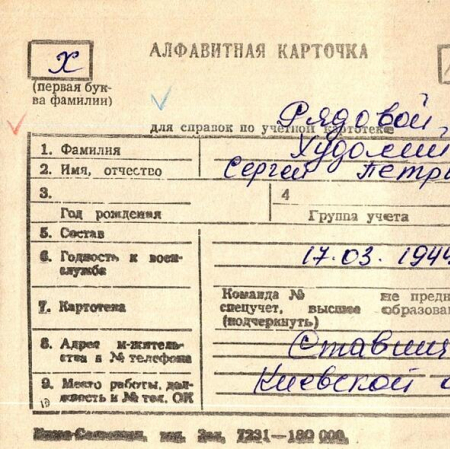 Х
АЛФАВИТНАЯ КАРТОЧКА
(первая бук-
ва фамилии)
Рядовой
для справок по учетной картотеке
1. Фамилия Худолий
2. Имя, отчество Сергей Петр
3. 4
Год рождения Группа учета
5. Состав
6. Годность к воен-
служба
17.03.1944
7. Картотека
Команда № не предн
спецучет, высшее образова
(подчеркнуть)
8. Адрес м-житель-
ства и № телефона
Ставищ
9. Место работы, дол-
жность и № тел. ОК
Киевской о
Зак. 7231—180 000.